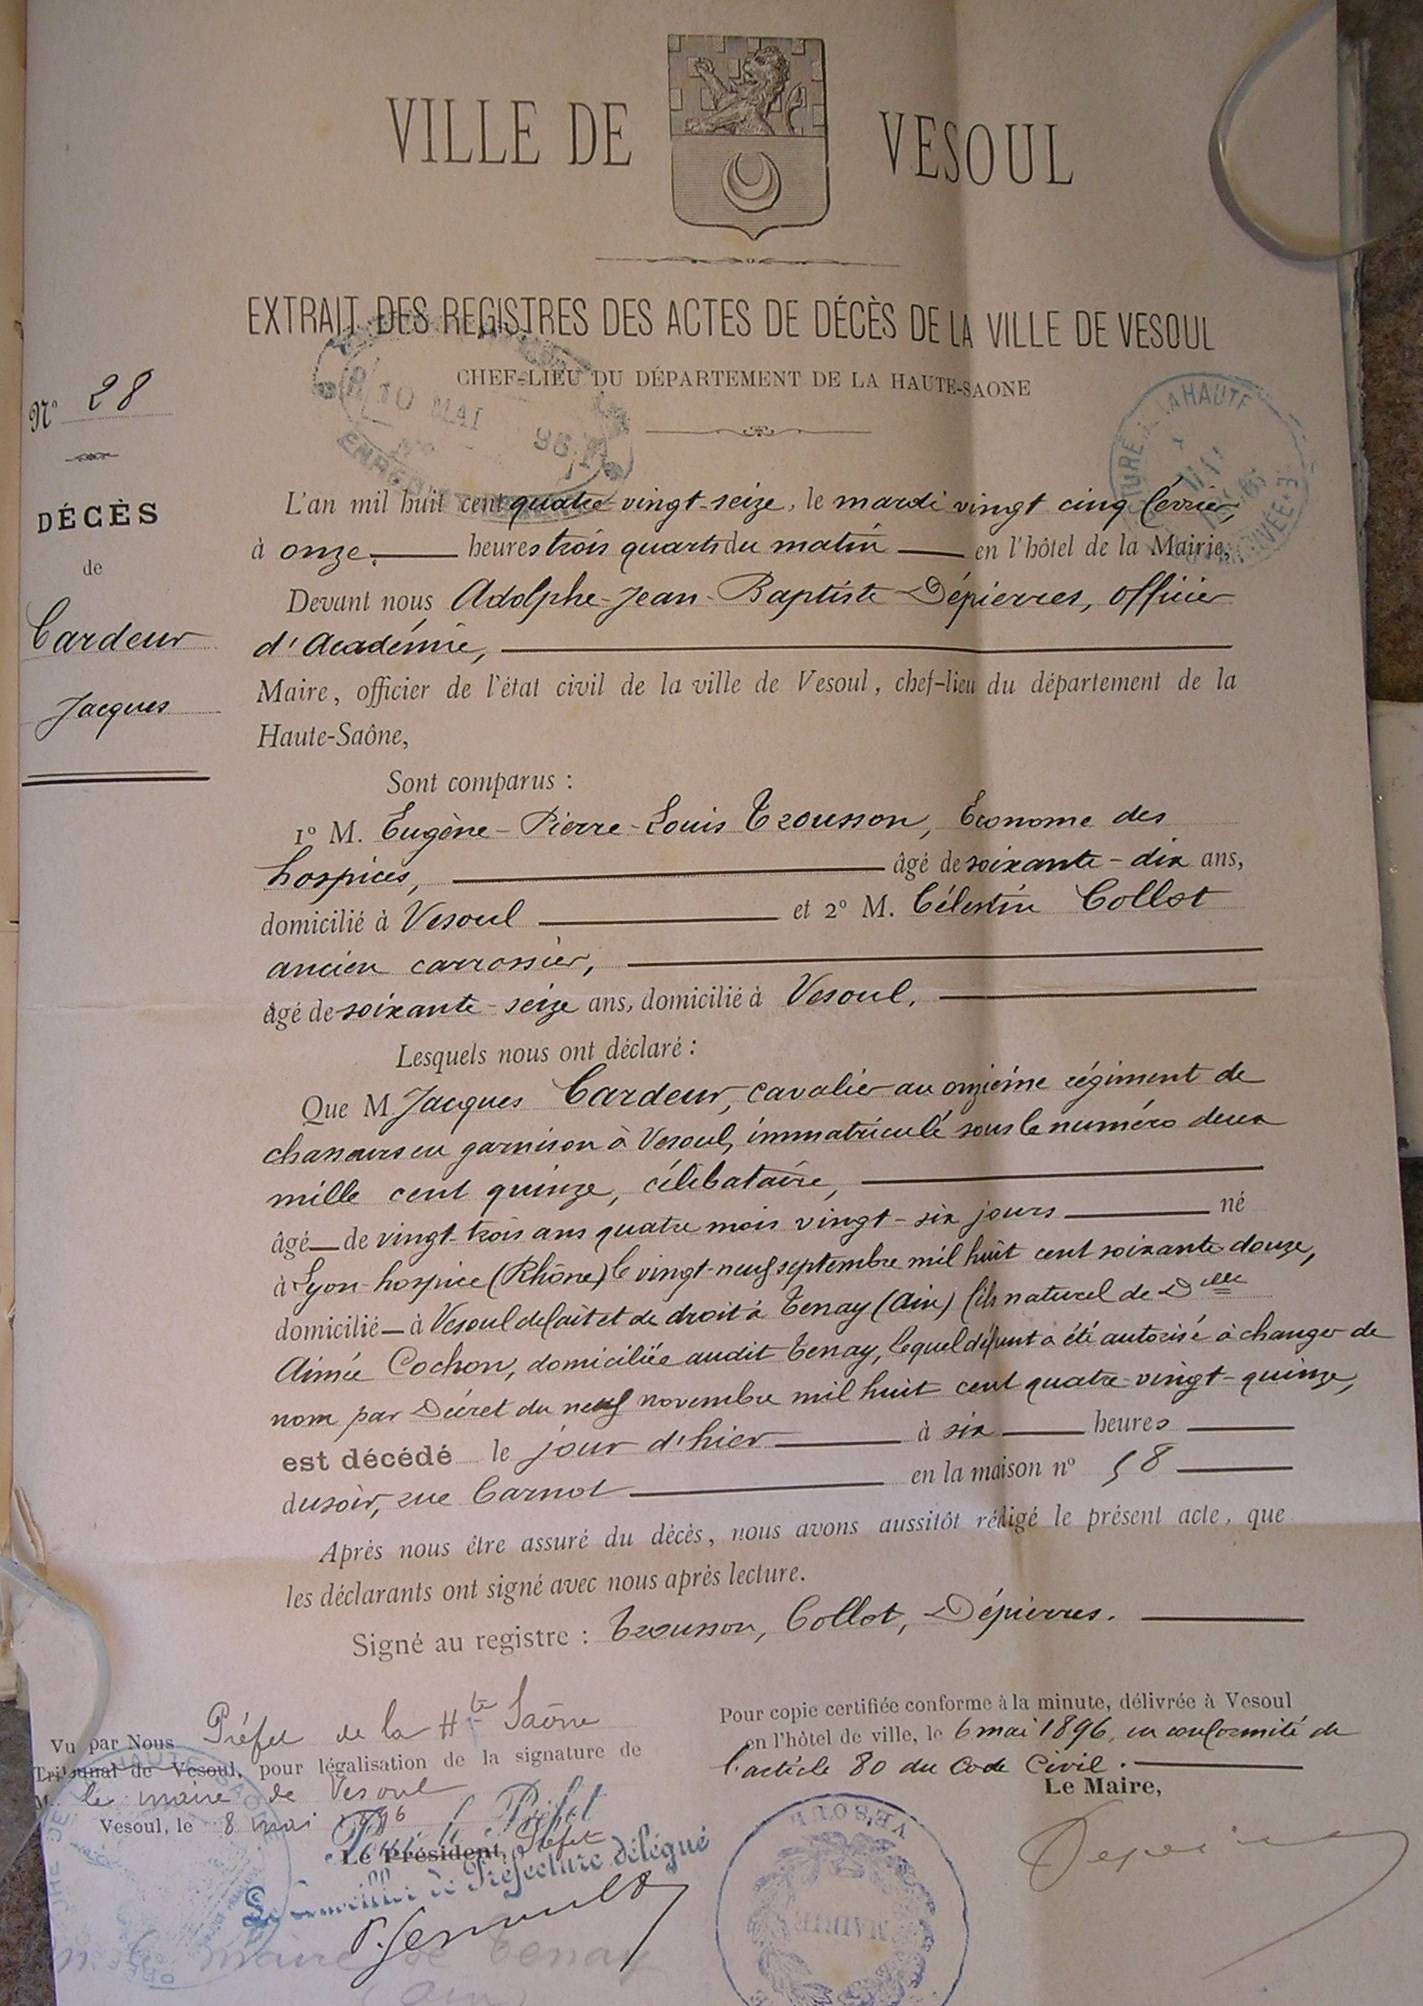 VILLE DE VESOUL
EXTRAIT DES REGISTRES DES ACTES DE DÉCÈS DE LA VILLE DE VESOUL
CHEF-LIEU DU DÉPARTEMENT DE LA HAUTE-SAONE
10 MAI 96
LA HAUTE
ARRIVÉE
N° 28
DÉCÈS
de
Cardeur
Jacques
L'an mil huit cent quatre vingt-seize, le mardi vingt cinq fevrier,
à onze heures trois quarts du matin en l'hôtel de la Mairie,
Devant nous, Adolphe-Jean-Baptiste Dépierres, officier
d'Académie,
Maire, officier de l'état civil de la ville de Vesoul, chef-lieu du département de la
Haute-Saône,
Sont comparus :
1° M. Eugène-Pierre-Louis Trousson, Econome des
hospices, âgé de soixante-dix ans,
domicilié à Vesoul et 2° M. Célestin Collot
ancien carrossier,
âgé de soixante-seize ans, domicilié à Vesoul.
Lesquels nous ont déclaré :
Que M Jacques Cardeur, cavalier au onzième régiment de
chasseurs en garnison à Vesoul, immatriculé sous le numéro deux
mille cent quinze, célibataire,
âgé de vingt-trois ans quatre mois vingt-six jours né
à Lyon-hospice (Rhône) le vingt-neuf septembre mil huit cent soixante-douze,
domicilié à Vesoul de fait et de droit à Tenay (Ain) fils naturel de Delle
Aimée Cochon, domiciliée audit Tenay, lequel défunt a été autorisé à changer de
nom par Décret du neuf novembre mil huit cent quatre-vingt-quinze,
est décédé le jour d'hier à six heures
du soir, rue Carnot en la maison n° 58
Après nous être assuré du décès, nous avons aussitôt rédigé le présent acte, que
les déclarants ont signé avec nous après lecture.
Signé au registre : Trousson, Collot, Dépierres.
Vu par Nous Préfet de la Hte Saône
Tribunal de Vesoul, pour légalisation de la signature de
M. le maire de Vesoul
Vesoul, le 8 mai 1896
Pour le Préfet
Le Président, Préfet
Le Conseiller de Préfecture délégué
m. le maire de Tenay
(Ain)
Pour copie certifiée conforme à la minute, délivrée à Vesoul
en l'hôtel de ville, le 6 mai 1896, en conformité de
l'article 80 du Code Civil.
Le Maire,
Depierres
VESOUL
MAIRIE